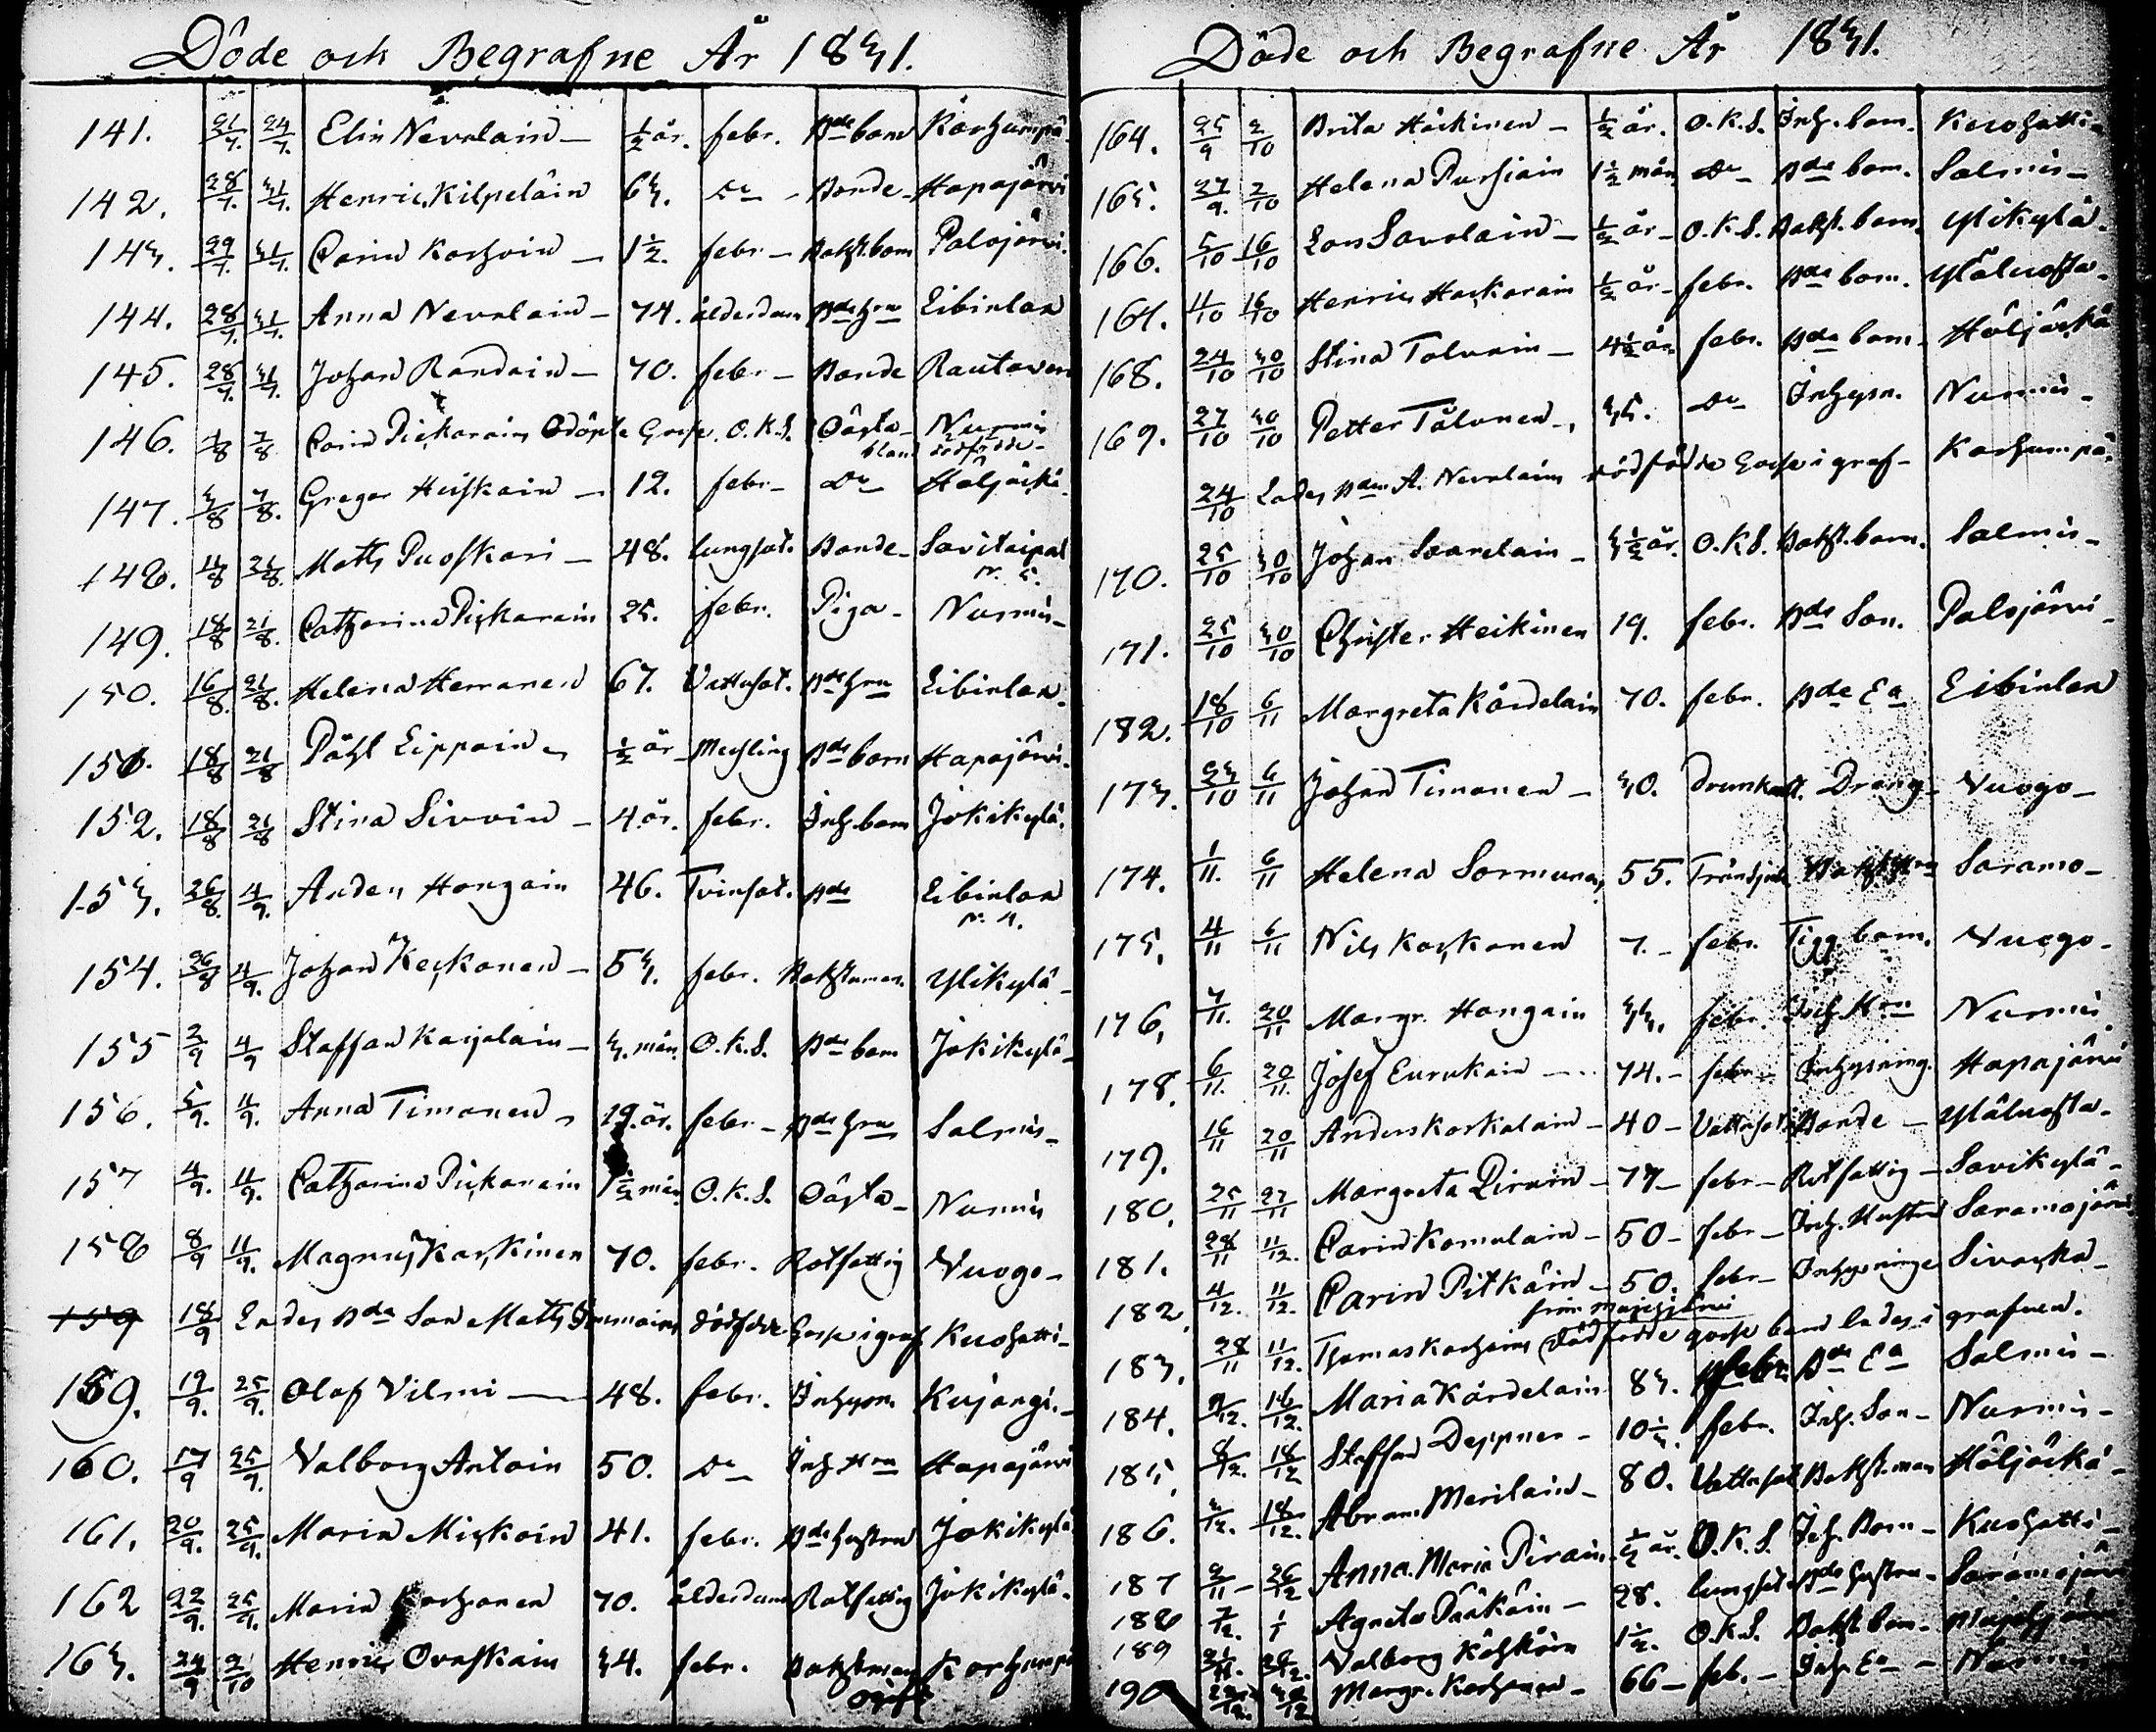 Döde och Begrafne År 1831.
141. 21/7. 24/7. Elin Nevalain – 1/2 år. febr. Bde barn Korhunpä.
142. 28/7. 31/7. Henric Kilpeläin 63. Do – Bonde – Hapajärvi
143. 29/7. 31/7. Carin Korhoin – 1 1/2. febr – Bakst. barn Palojärvi.
144. 28/7. 31/7. Anna Nevalain – 74. ålderdom Bde hru Eibinlax
145. 28/7. 31/7. Johan Randain – 70. febr – Bonde Rautavara
146. 1/8 7/8 Carin Pickarains Odöpte Gosse. O.K.S. Oäckta – Nurmis
bland dödfödde –
147. 3/8 7/8. Greger Heiskain – 12. febr – Do Höljäckä.
148. 11/8 21/8. Matts Puoskari – 48. lungsot. Bonde – Savitaipal
N. 5.
149. 18/8 21/8. Catharina Pickarain 25. febr. Piga – Nurmis –
150. 16/8. 21/8. Helena Herranen 67. Vattusot. Bde hru Eibinlax.
151. 18/8 21/8 Påhl Lippoin – 1/2 år – Messling Bde barn Hapajärvi.
152. 18/8 21/8 Stina Sivoin – 4 år. febr. Inh. barn Jokikylä.
153. 26/8. 4/9. Anders Hongain 46. Tvinsot. Bde Eibinlax
N. 4.
154. 26/8 4/9. Johan Keckonen – 53. febr. Bakstuman. Ylikylä –
155 2/9 4/9 Staffan Karjalain – 3. mån. O.K.S. Bde barn Jokikylä –
156. 5/9. 11/9. Anna Timonen – 29. år. febr – Bde hru Salmis –
157 4/9. 11/9. Catharina Pickarain 1 1/2 mån. O.K.S. Oäckta – Nurmis
158 8/9 11/9. Magnus Karckinen 70. febr. Rotfattig Wuogo –
159 18/9 Lades Bde Son Matts dödfödde Gosse i graf Kuohatti –
159. 19/9. 25/9. Olof Vilmi – 48. febr. Inhysn. Kujangi. –
160. 17/9 25/9. Valborg Antoin 50. Do Inh. Hru Hapajärvi
161. 20/9. 25/9. Maria Mickoin 41. febr. Bde hustru Jokikylä
162 22/9. 25/9. Maria Korhonen 70. ålderdom Rotfattig Jokikylä.
163. 24/9 2/10 Henric Ovaskain 34. febr. Bakstuman Korhunpä
ogift
Döde och Begrafne År 1831.
164. 25/9 2/10 Brita Häckinen – 1/2 år. O.K.S. Inh. barn. Kuohatti –
165. 27/9. 2/10 Helena Pursiain 1 1/2 mån Do – Bde barn. Salmis –
166. 5/10 16/10 Lars Savolain – 1/2 år – O.K.S. Bakst. barn. Ylikylä.
167. 11/10 16/10 Henric Hackarain 1/2 år – febr. Bde barn. Yläluosta.
168. 24/10 30/10 Stina Tolvain – 4 1/2 år febr. Bde barn. Höljäckä
169. 27/10 30/10 Petter Tålonen – 35. Do Inhysn. Nurmis –
24/10 Lades Bden A. Nevalains dödfödde Gosse i graf – Korhunpä.
170. 25/10 30/10 Johan Saarelain – 3 1/2 år. O.K.S. Bakst. barn. Salmis –
171. 25/10 30/10 Christer Heikinen 19. febr. Bde Son. Palojärvi –
182. 18/10 6/11 Margreta Kärdelain 70. febr. Bde Ea Eibinlax
173. 23/10 6/11 Johan Timonen – 30. drunknat. Dräng – Wuogo –
174. 1/11. 6/11 Helena Sormunen 55. Bakst. Hru Saramo –
175. 4/11 6/11 Nils Kockonen 7. – febr. Tigg. barn. Wuogo –
176. 7/11. 20/11 Margr. Hongain 33. febr. Inh. Hru Nurmis
178. 6/11. 20/11. Josef Eurukain – 74. – febr – Inhysning. Hapajärvi
179. 16/11 20/11 Anders Korkalain – 40 – Vattusot. Bonde – Yläluosta –
180. 25/11 27/11 Margreta Piroin – 77 – febr – Rotfattig – Savikylä –
181. 28/11 11/12. Carin Komulain – 50 – febr – Inh. Hustru Saramojärvi
182. 4/12. 11/12. Carin Pitkäin – 50. febr – Inhysninge Sivacka –
från Majesjärvi
183. 28/11 11/12. Thomas Korhoins dödfödde gosse barn lades i grafven.
184. 9/12. 16/12. Maria Kärdelain 83. febr. Bde Ea Salmis –
185. 8/12. 18/12 Staffan Deppner – 10 1/2. febr. Inh. Son – Nurmis –
186. 3/12. 18/12. Abram Merilain – 80. Vattusot Bakst. man Höljäckä –
187 2/11 – 26/12 Anna Maria Pirain 1/2 år. O.K.S. Inh. Barn – Kuohatti –
188 7/12. 1/1 Agneta Pääköin – 28. lungsot. Bde hustru – Saramojärvi
189 Valborg Kåhkoin 1 1/2. O.K.S. Bakst. barn – Majesjärvi
190 Margr. Korhonen – 66 – feb. – Inh. Ea – Nurmis